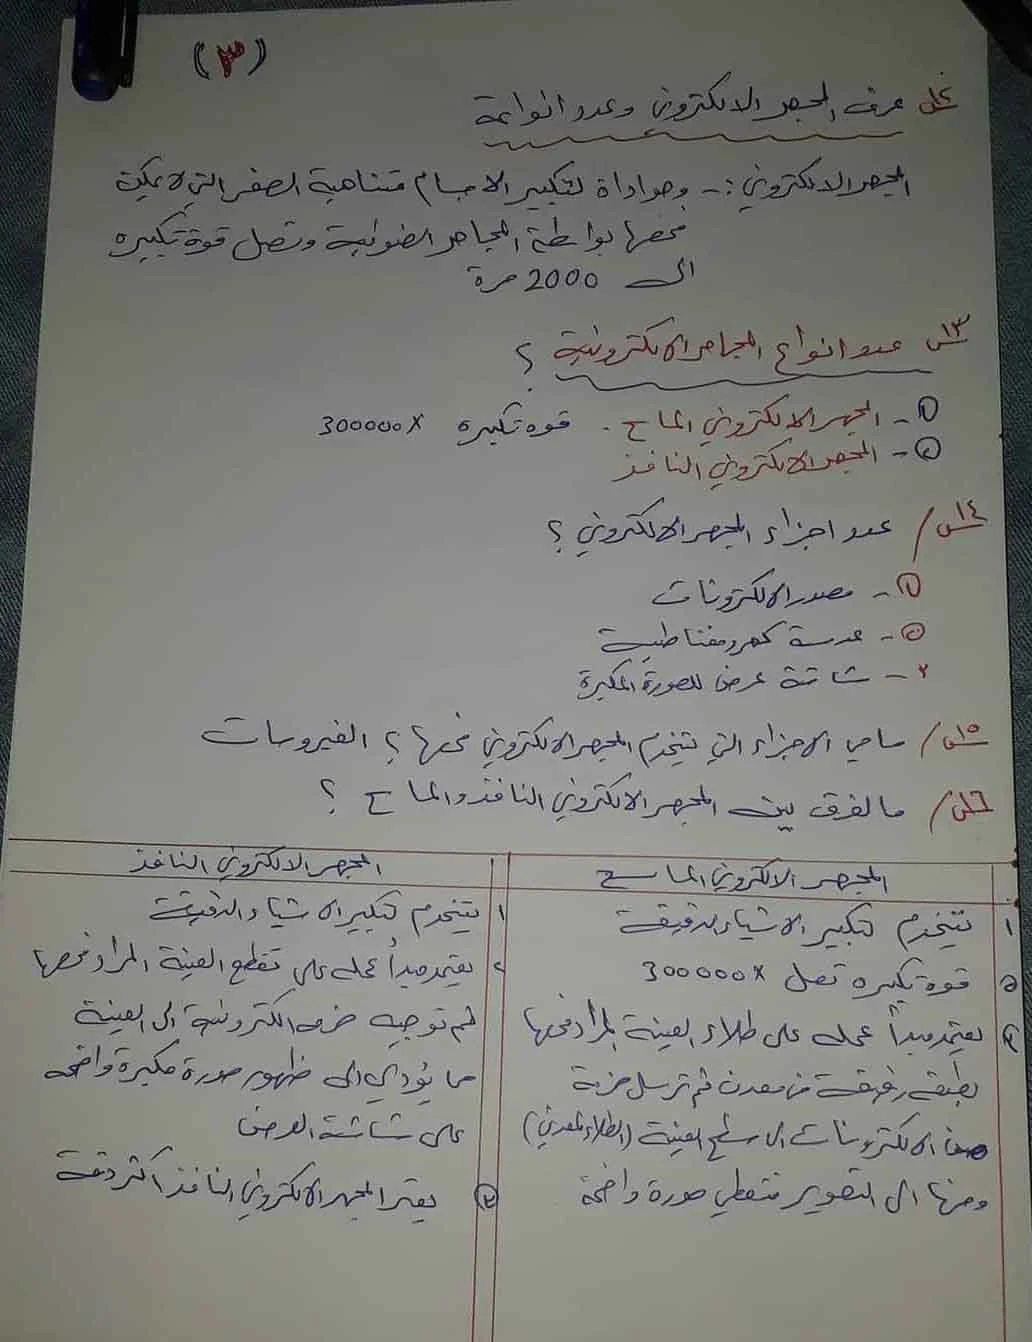 (٣)
عرف المجهر الالكتروني وعدد انواعة
المجهر الالكتروني :- وهو اداة لتكبير الاجسام متناهية الصغر التي لا يمكن
فحصها بواسطة المجاهر الضوئية وتصل قوة تكبيره
الى 2000 مرة
س١٣ عدد انواع المجاهر الالكترونية ؟
١- المجهر الالكتروني الماسح . قوة تكبيره 300000x
٢- المجهر الالكتروني النافذ
س١٤/ عدد اجزاء المجهر الالكتروني ؟
١- مصدر الالكترونات
٢- عدسة كهرومغناطيسية
٣- شاشة عرض للصورة المكبرة
س١٥/ ماهي الاجزاء التي يستخدم المجهر الالكتروني فحصها ؟ الفيروسات
س١٦/ مالفرق بين المجهر الالكتروني النافذ والماسح ؟
المجهر الالكتروني الماسح
١ يستخدم لتكبير الاشياء الدقيقة
٢ قوة تكبيره تصل 300000x
٣ يعتمد مبدأ عمله على طلاء العينة المراد فحصها
بطبقة رقيقة من معدن ثم ترسل حزمة
من الالكترونات الى سطح العينة (الطلاء المعدني)
ومنها الى التصوير فتعطي صورة واضحة
المجهر الالكتروني النافذ
١ يستخدم لتكبير الاشياء الدقيقة
٢ يعتمد مبدأ عمله على تقطع العينة المراد فحصها
ثم توجيه حزم الكترونية الى العينة
مما يؤدي الى ظهور صورة مكبرة واضحه
على شاشة العرض
٣ يعتبر المجهر الالكتروني النافذ اكثر دقة